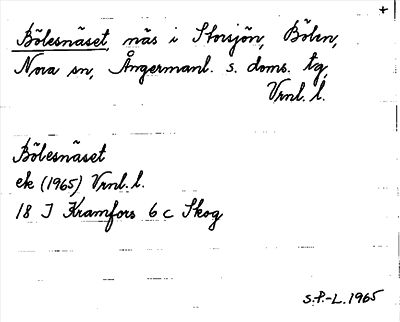 +
Bölesnäset, näs i Storsjön, Bölen,
Nora sn, Ångermanl. s. doms. tg,
Vrnl. l.
Bölesnäset
ek (1965) Vrnl. l.
18 J Kramfors 6 c Skog
S.P.-L. 1965